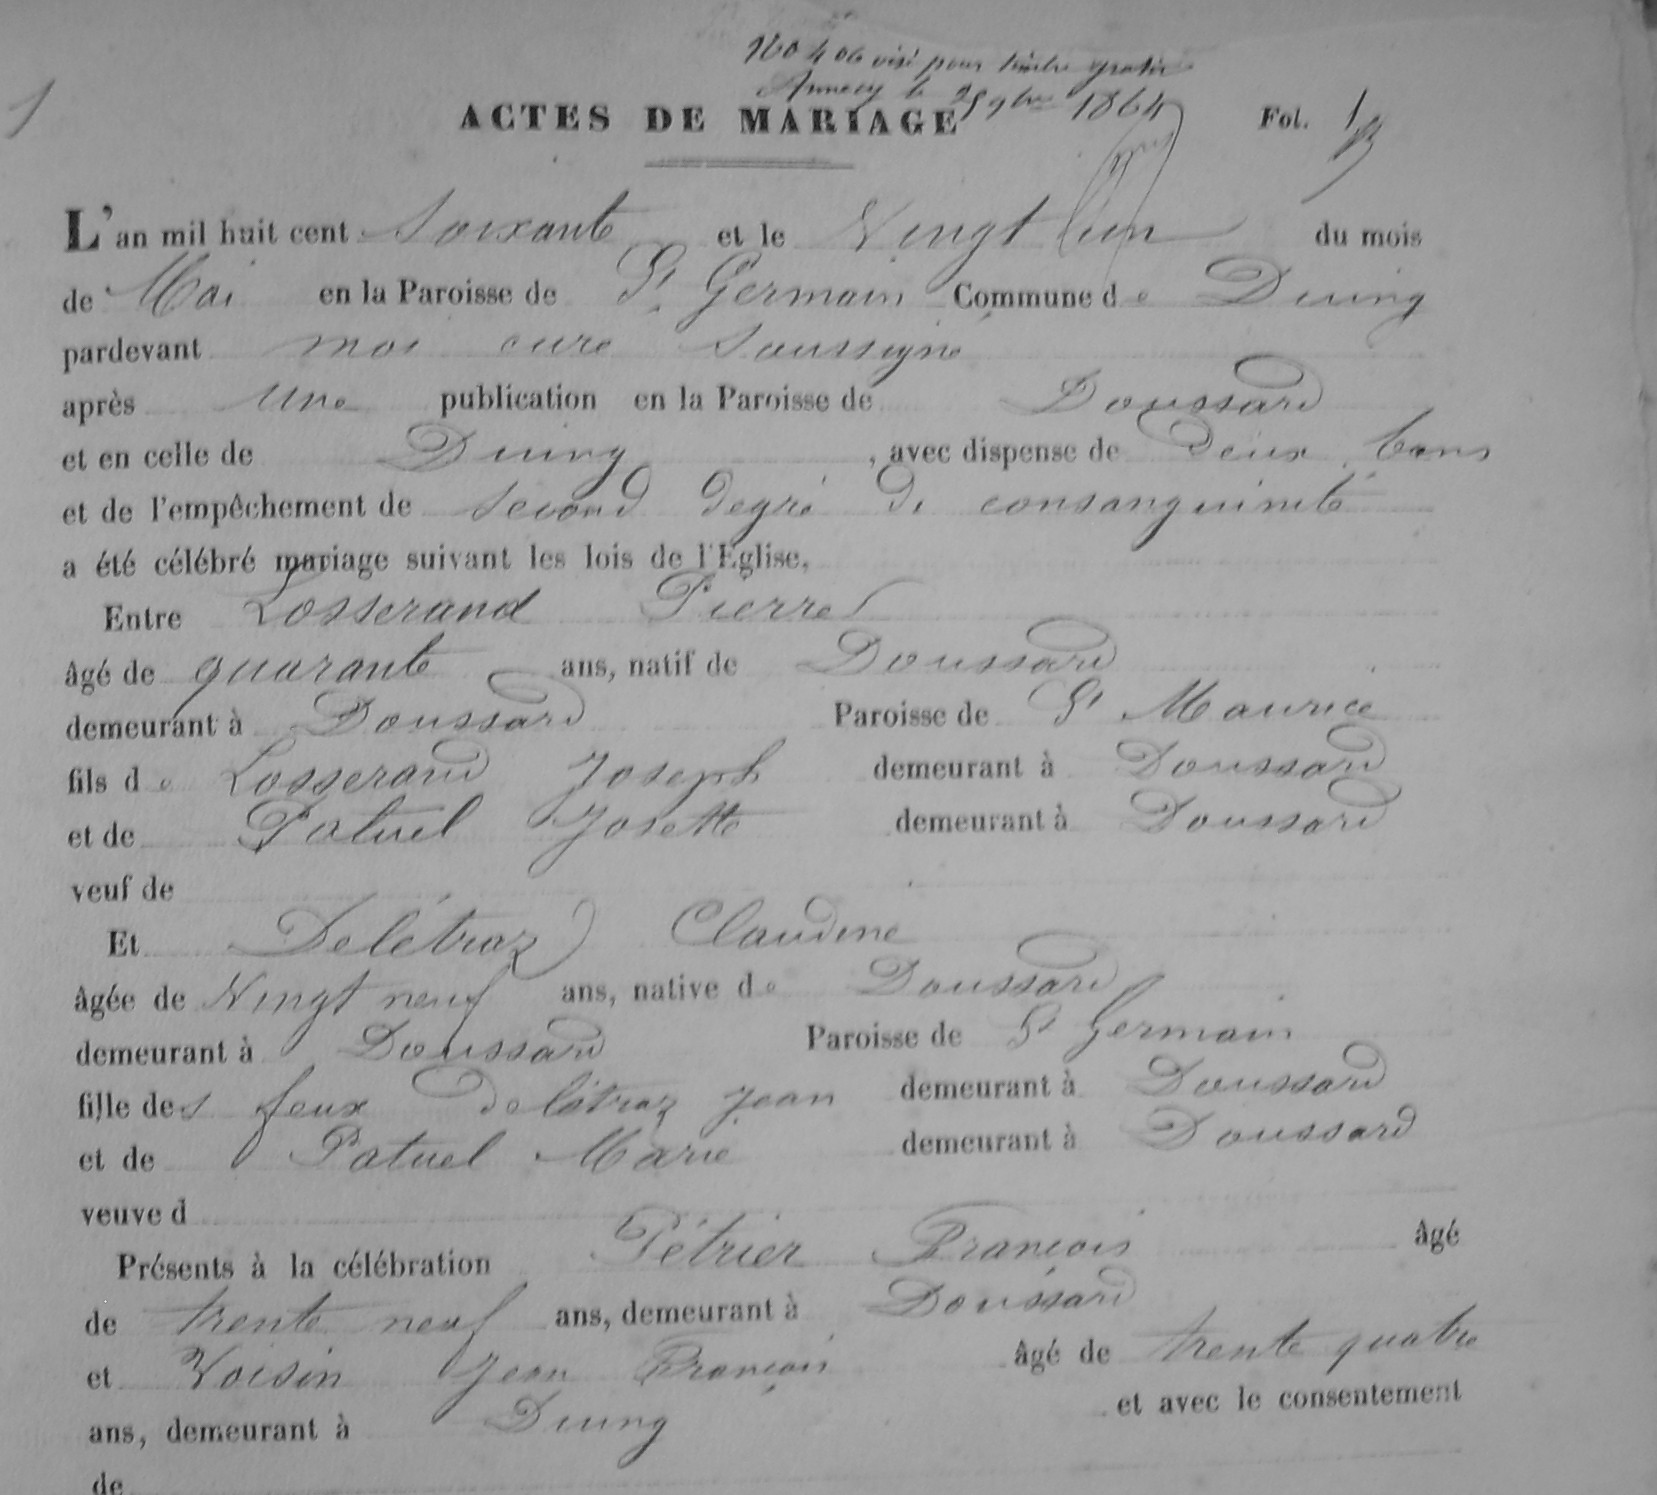 1
No 406 visé pour timbre gratis
Annecy le 25 9bre 1864
ACTES DE MARIAGE Fol. 1
L'an mil huit cent Soixante et le Vingt un du mois
de Mai en la Paroisse de St Germain Commune de Duing
pardevant moi curé soussigné
après une publication en la Paroisse de Doussard
et en celle de Duing, avec dispense de deux bans
et de l'empêchement de second degré de consanguinité
a été célébré mariage suivant les lois de l'Eglise,
Entre Losserand Pierre
âgé de quarante ans, natif de Doussard
demeurant à Doussard Paroisse de St Maurice
fils de Losserand Joseph demeurant à Doussard
et de Patuel Josette demeurant à Doussard
veuf de
Et Delétraz Claudine
âgée de Vingt neuf ans, native de Doussard
demeurant à Doussard Paroisse de St Germain
fille des feux delétraz Jean demeurant à Doussard
et de Patuel Marie demeurant à Doussard
veuve d
Présents à la célébration Pétrier François âgé
de trente neuf ans, demeurant à Doussard
et Voisin Jean François âgé de trente quatre
ans, demeurant à Duing et avec le consentement
de